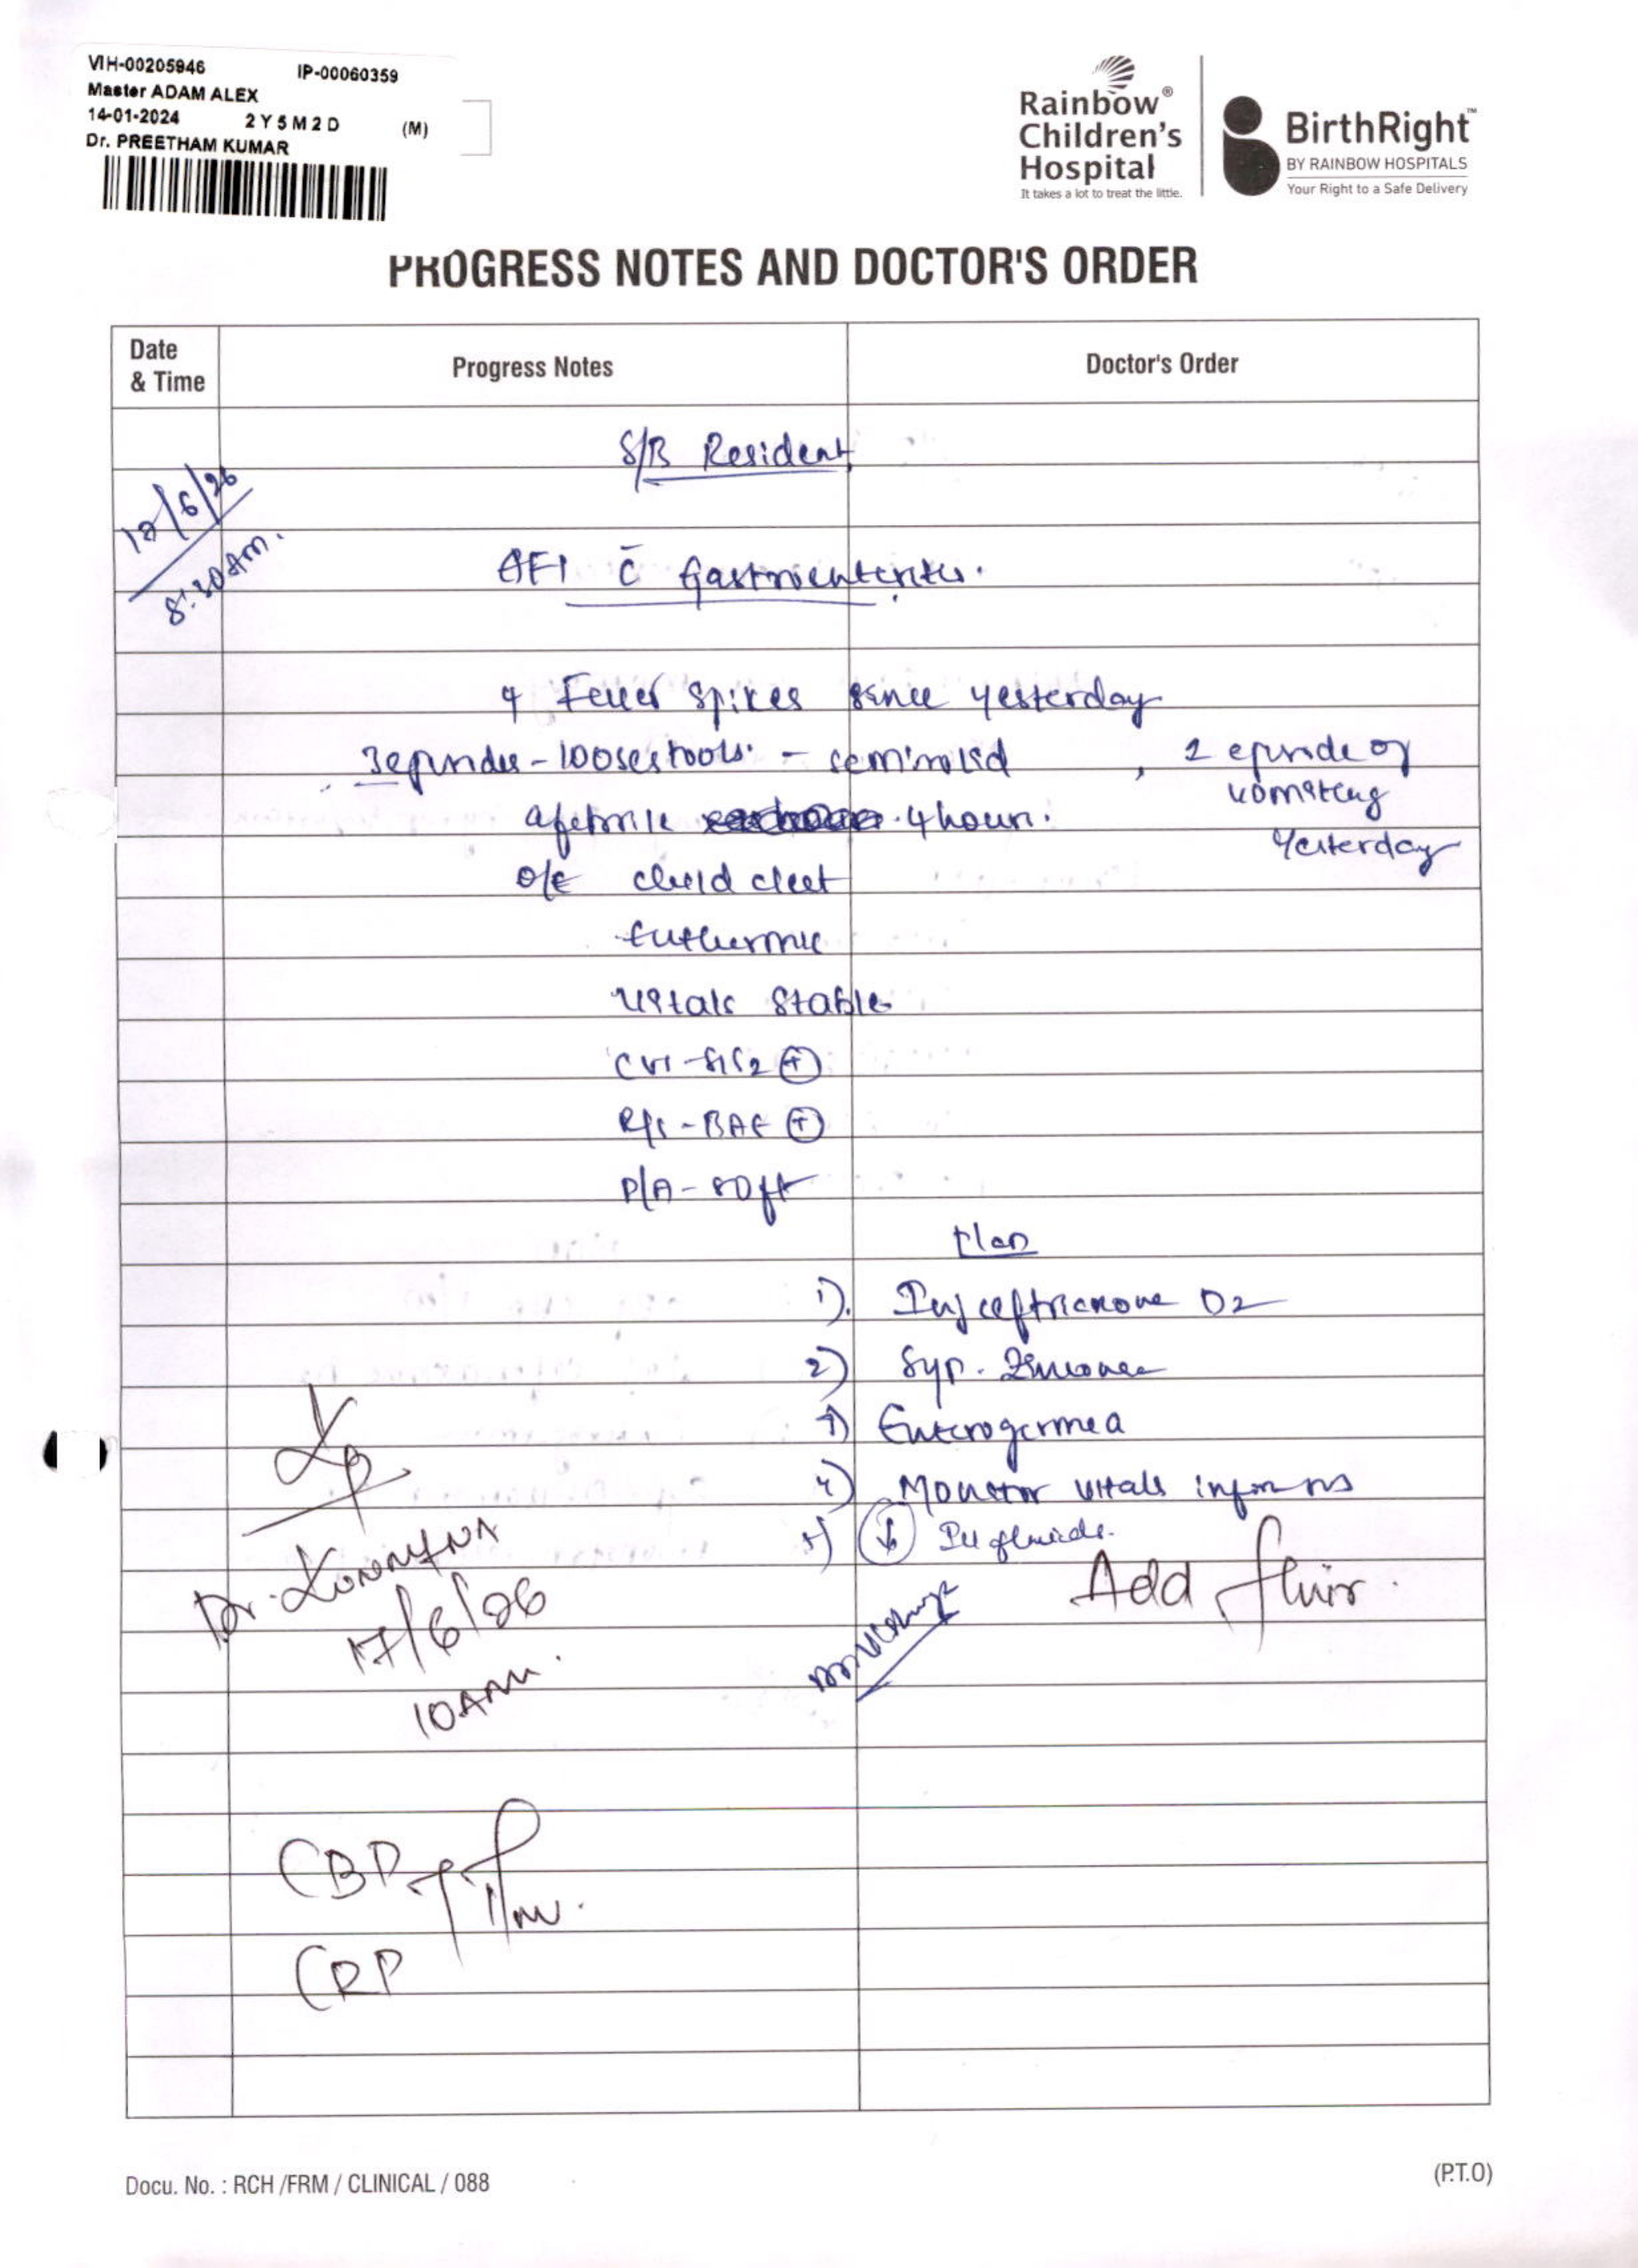 VIH-00205946 IP-00060359
Master ADAM ALEX
14-01-2024 2Y5M2D (M)
Dr. PREETHAM KUMAR
Rainbow®
Children's
Hospital
It takes a lot to treat the little.
BirthRight™
BY RAINBOW HOSPITALS
Your Right to a Safe Delivery
PROGRESS NOTES AND DOCTOR'S ORDER
Date
& Time
Progress Notes
Doctor's Order
S/B Resident
/6/26
AFI c̄ Gastroenteritis.
4 Fever spikes since yesterday
3 episodes - loosestools - semisolid , 1 episode of
vomiting
yesterday
afebrile 4 hours.
o/e child
Euthermic
Vitals stable
CVS - S1S2 ⊕
R/S - BAE ⊕
P/A - soft
Plan
1). Inj ceftriaxone D2
2) Syp.
3) Enterogermina
4) Monitor vitals inform
5) ↓ IV fluids.
Add
Dr.
17/6/26
10AM.
CBP
CRP
Docu. No. : RCH /FRM / CLINICAL / 088
(P.T.O)